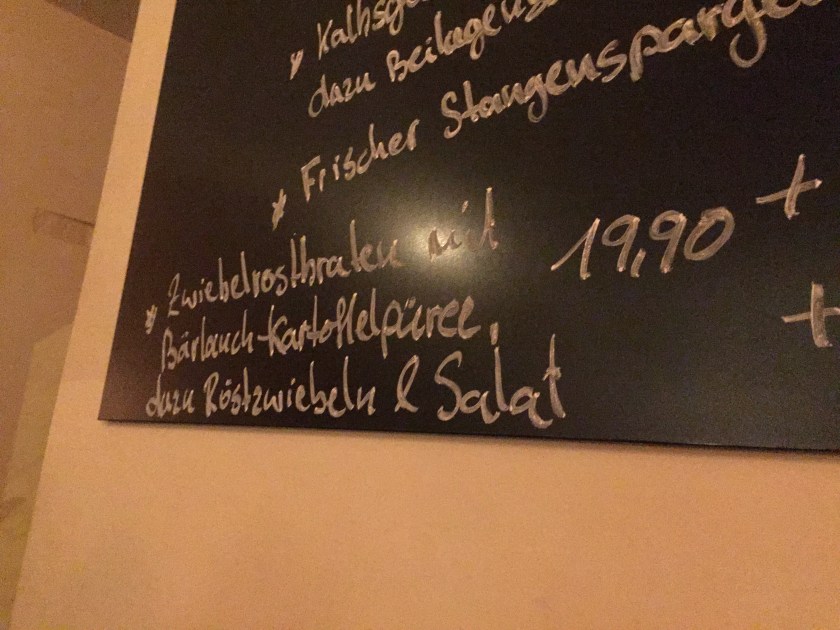 * Kalbsge
dazu Beilagens
* Frischer Stangenspargel
* Zwiebelrostbraten mit 19,90 +
Bärlauch-Kartoffelpüree, +
dazu Röstzwiebeln & Salat